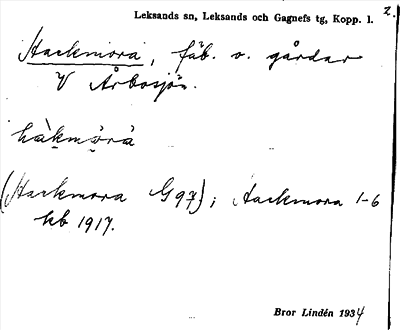 Leksands sn, Leksands och Gagnefs tg, Kopp. l.
2.
Hackmora, fäb. o. gårdar
V Årbosjön.
hàkmɷ̀rà
(Hackmora G97); Hackmora 1-6
kb 1917.
Bror Lindén 1934